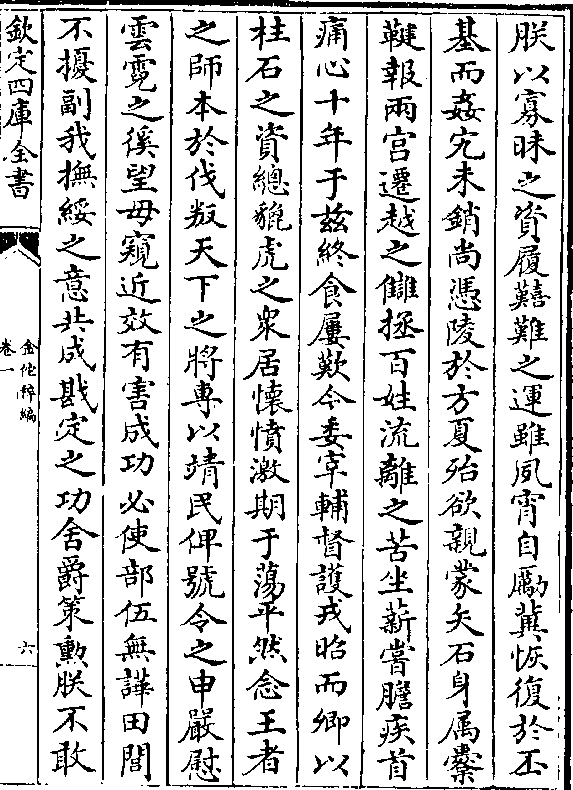 朕以寡昧之資履囏難之運雖夙宵自勵冀恢復於丕
基而姦宄未銷尚憑陵於方夏殆欲親蒙矢石身属櫜
鞬報兩宫遷越之讎拯百姓流離之苦坐薪嘗膽疾首
痛心十年于兹終食屢歎今委宰輔督護戎昭而卿以
柱石之資總貔虎之衆居懷憤激期于蕩平然念王者
之師本於伐叛天下之將專以靖民俾號令之申嚴慰
雲霓之徯望毋窺近效有害成功必使部伍無譁田閭
不擾副我撫綏之意共成戡定之功舍爵策勲朕不敢
欽定四庫全書
金佗稡編
卷一
六